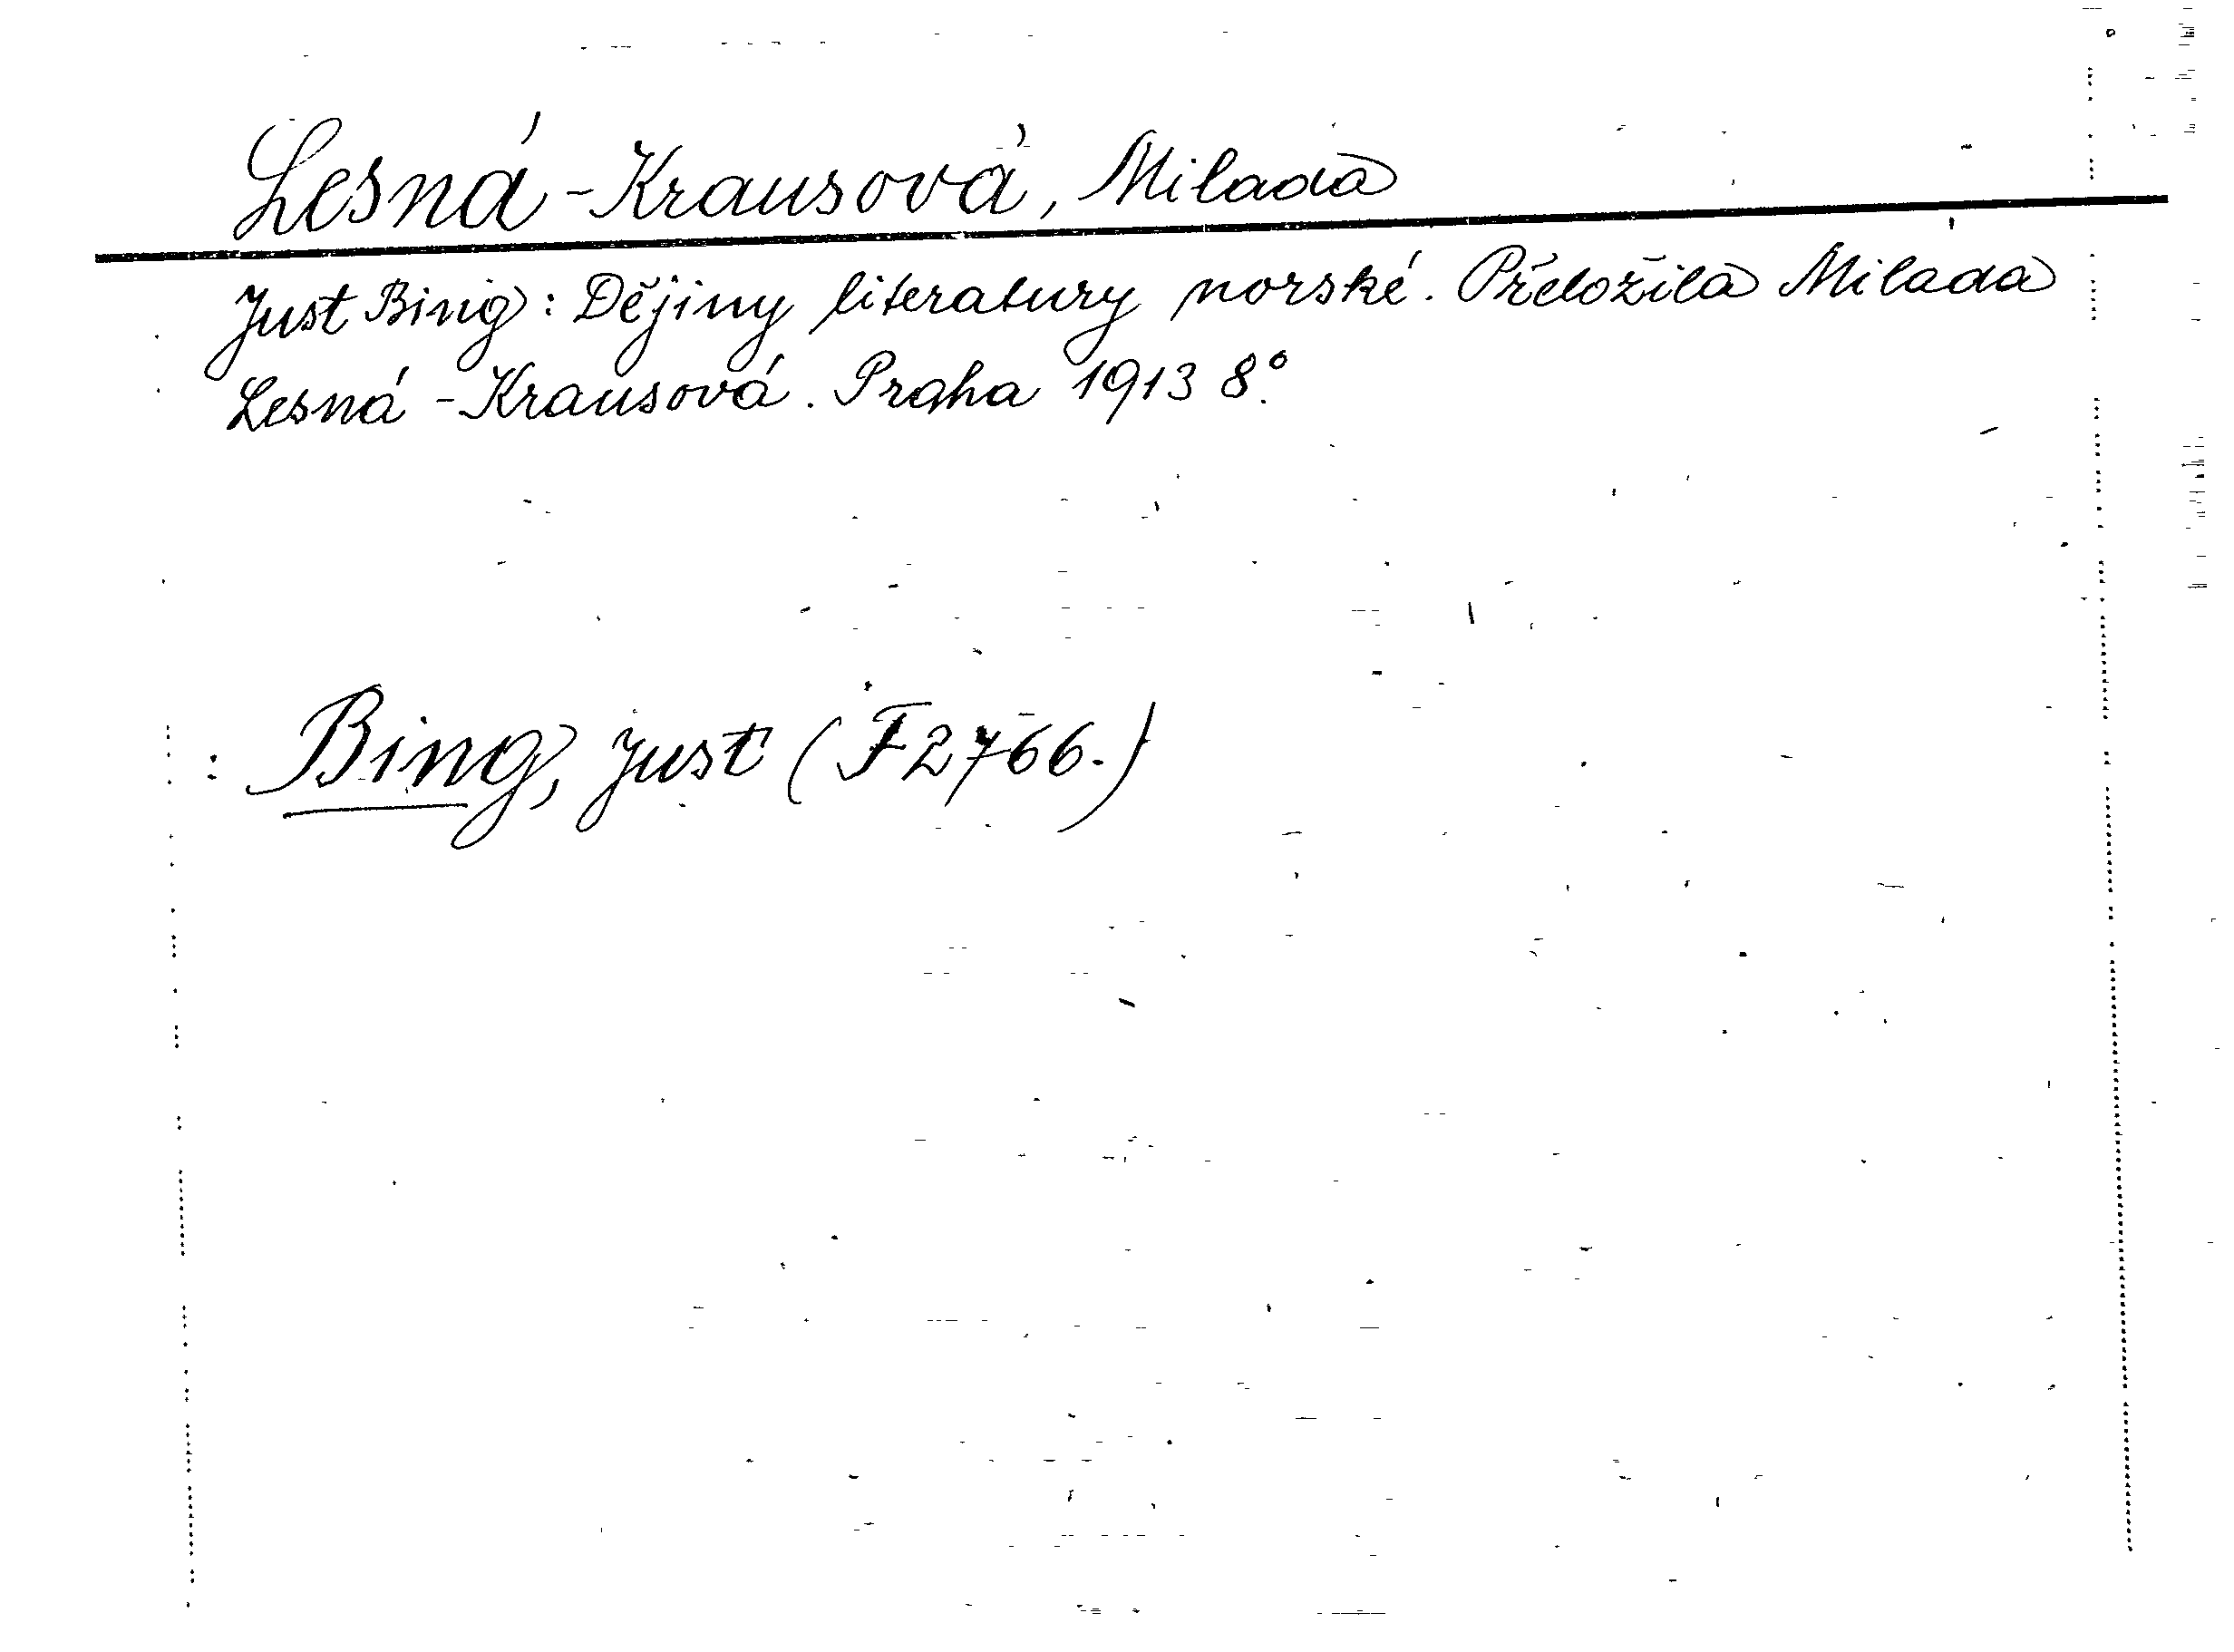 Lesná-Krausová, Milada
Just Bing: Dějiny literatury norské. Přeložila Milada
Lesná-Krausová. Praha 1913 8°.
: Bing, Just (F 2766.)